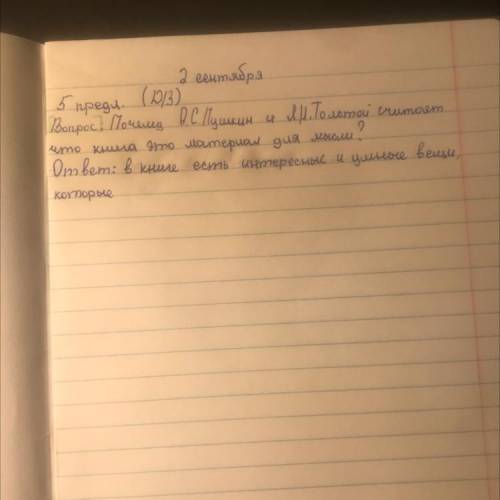 2 сентября
5 предл. (D/З)
Вопрос: Почему А.С Пушкин и Л.Н.Толстой считают
что книга это материал для мысли?
Ответ: в книге есть интересные и умные вещи,
которые